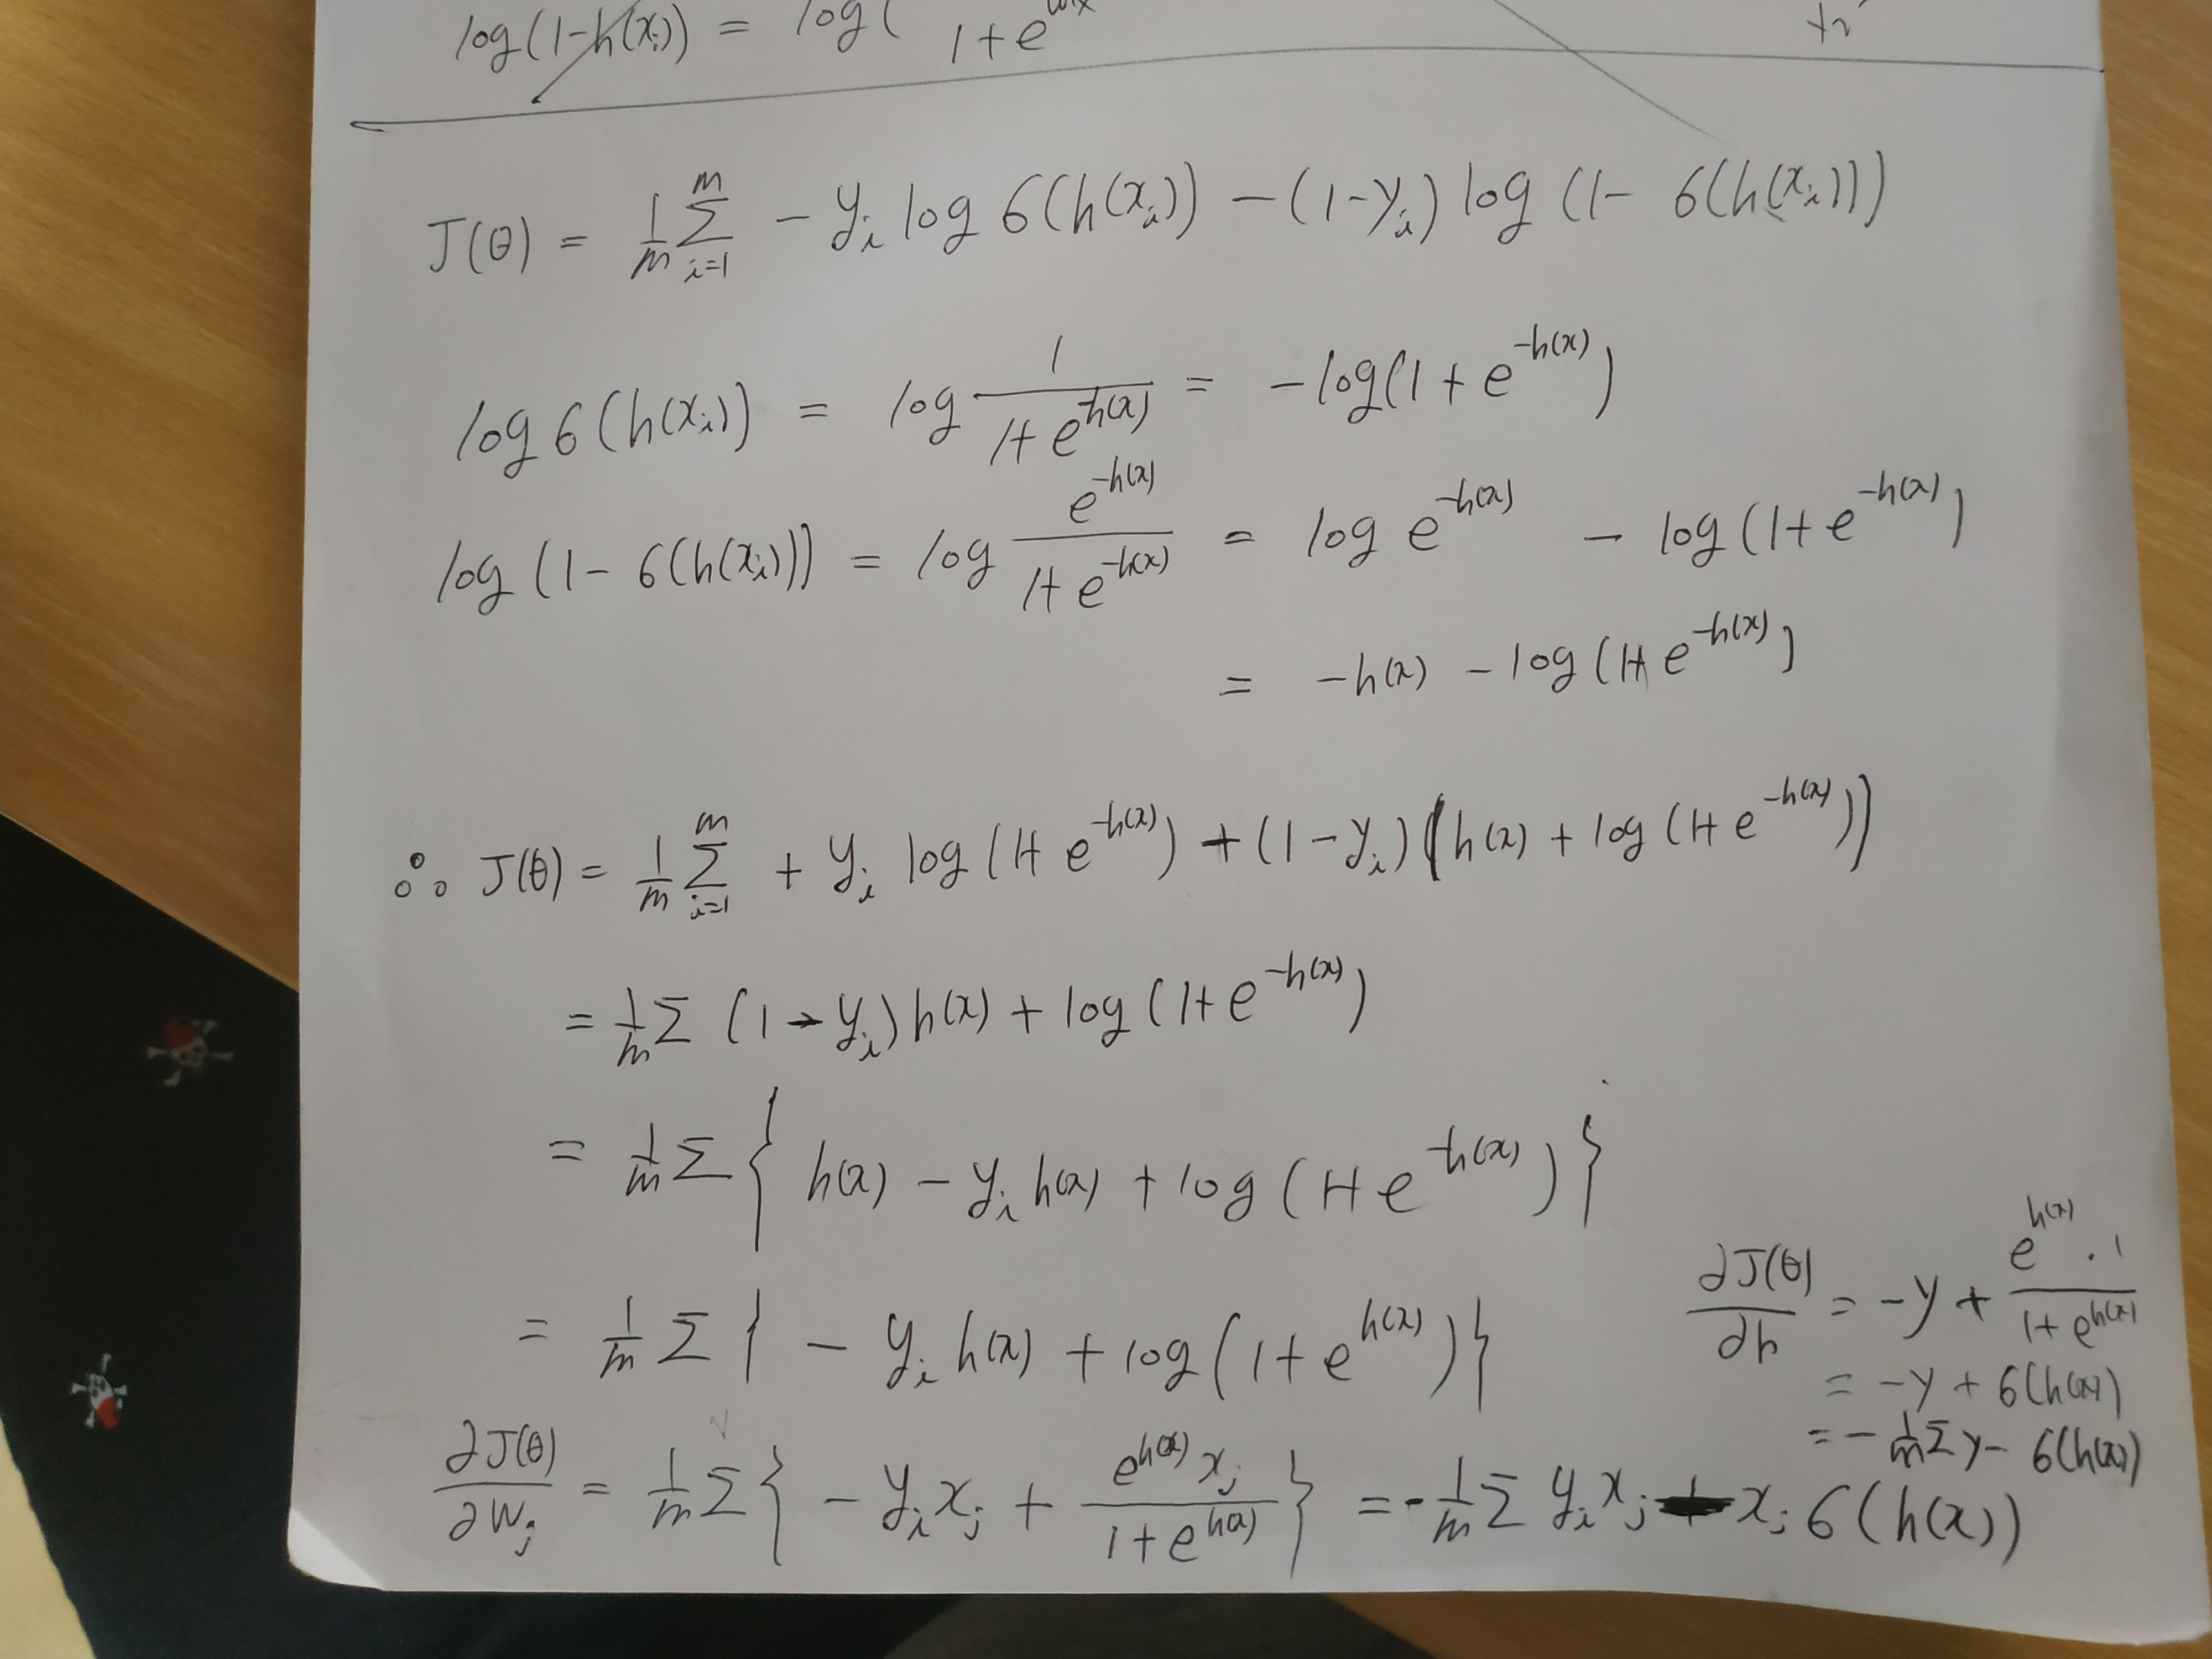 log(1-h(xᵢ)) = log( 1+e^wx
J(θ) = 1/m Σ_{i=1}^{m} - yᵢ log б(h(xᵢ)) - (1-yᵢ) log (1- б(h(xᵢ)))
log б(h(xᵢ)) = log 1/(1+e^{-h(x)}) = -log(1+e^{-h(x)})
log (1- б(h(xᵢ))) = log e^{-h(x)}/(1+e^{-h(x)}) = log e^{-h(x)} - log (1+e^{-h(x)})
= -h(x) - log (1+e^{-h(x)})
∴ J(θ) = 1/m Σ_{i=1}^{m} + yᵢ log (1+e^{-h(x)}) + (1-yᵢ) (h(x) + log (1+e^{-h(x)}))
= 1/m Σ (1-yᵢ)h(x) + log (1+e^{-h(x)})
= 1/m Σ { h(x) - yᵢ h(x) + log (1+e^{-h(x)}) }
= 1/m Σ { - yᵢ h(x) + log (1+e^{h(x)}) }
∂J(θ)/∂h = -y + e^{h(x)}·1/(1+e^{h(x)})
= -y + б(h(x))
= - 1/m Σ y - б(h(x))
∂J(θ)/∂wⱼ = 1/m Σ { - yᵢxⱼ + e^{h(x)} xⱼ/(1+e^{h(x)}) } = - 1/m Σ yᵢxⱼ - xⱼ б(h(x))